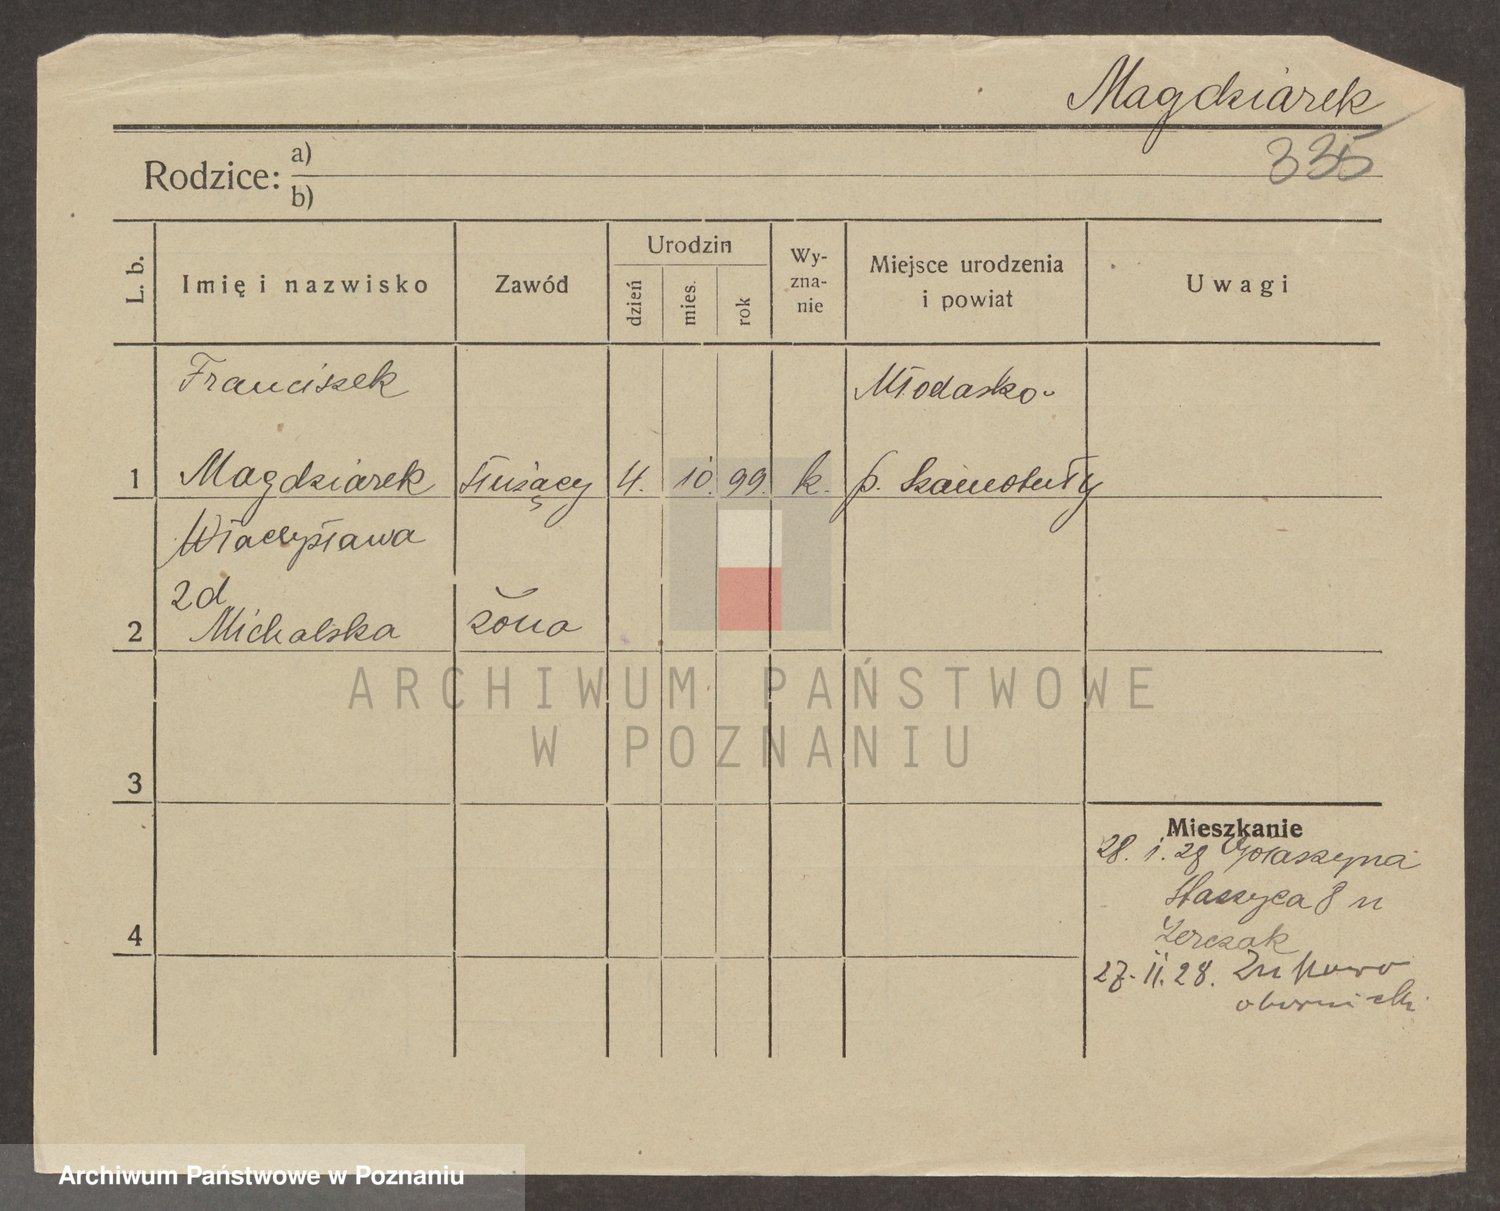 Magdziarek
335
Rodzice: a)
b)
L. b.
Imię i nazwisko
Zawód
Urodzin
dzień
mies.
rok
Wy-
zna-
nie
Miejsce urodzenia
i powiat
Uwagi
Franciszek
Młodasko
1 Magdziarek służący 4. 10. 99. k. p. Szamotuły
Władysława
zd
2 Michalska żona
3
4
Mieszkanie
28. 1. 28 Gołaszyna
Staszyca 8 u
27. II. 28.
ARCHIWUM PAŃSTWOWE
W POZNANIU
Archiwum Państwowe w Poznaniu